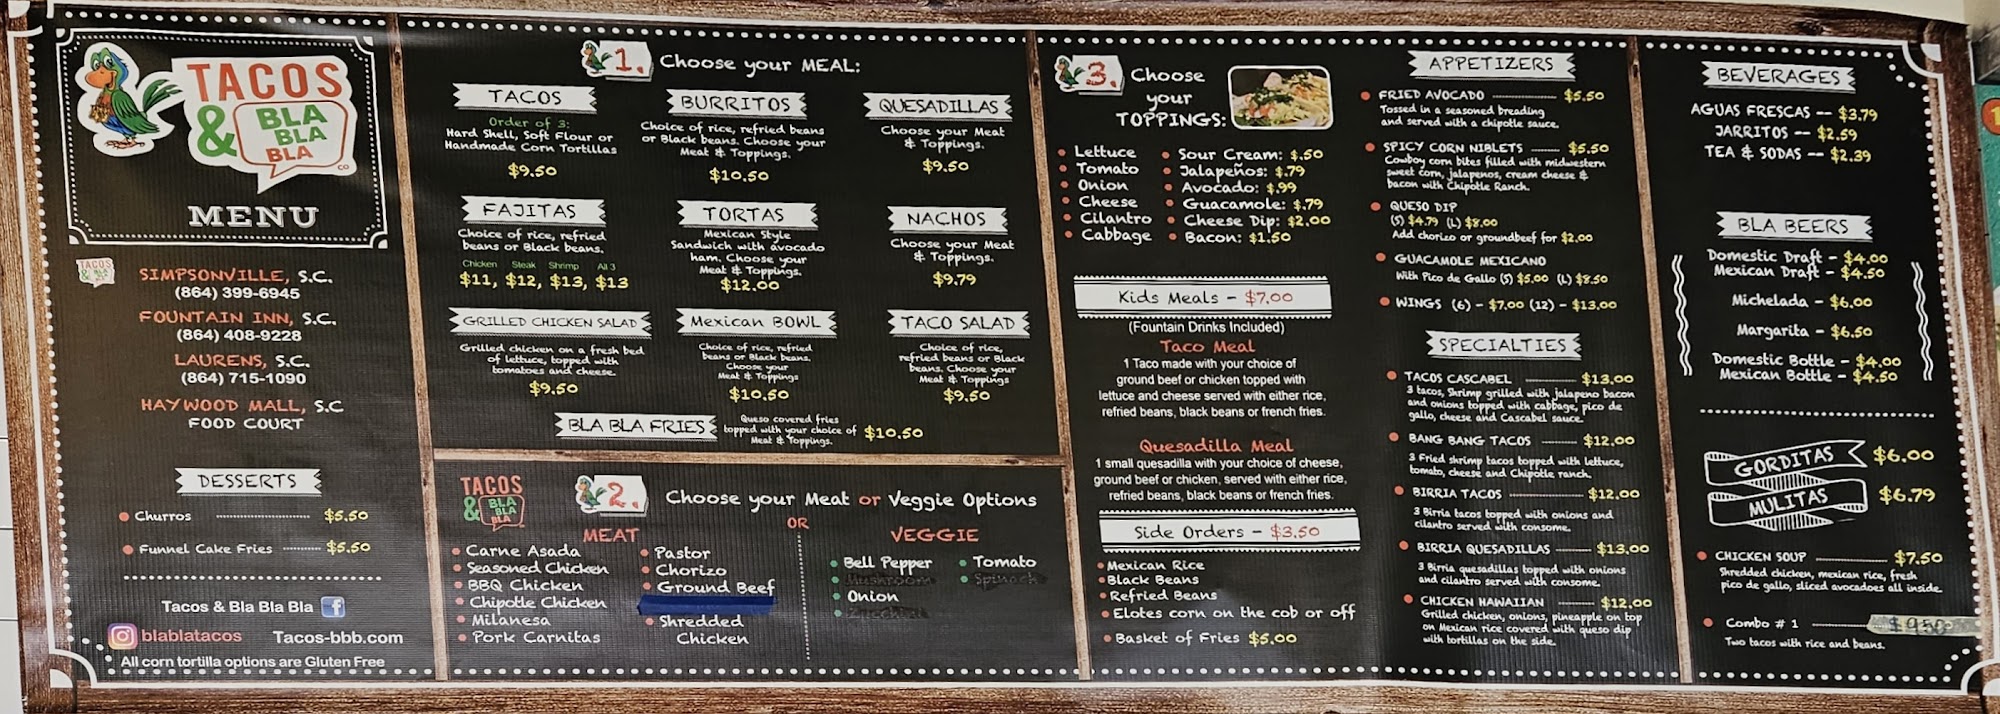 TACOS
& BLA
BLA
BLA
CO
MENU
TACOS
&
SIMPSONVILLE, S.C.
(864) 399-6945
FOUNTAIN INN, S.C.
(864) 408-9228
LAURENS, S.C.
(864) 715-1090
HAYWOOD MALL, S.C
FOOD COURT
DESSERTS
Churros $5.50
Funnel Cake Fries $5.50
Tacos & Bla Bla Bla f
blablatacos Tacos-bbb.com
All corn tortilla options are Gluten Free
1. Choose your MEAL:
TACOS
Order of 3:
Hard Shell, Soft Flour or
Handmade Corn Tortillas
$9.50
BURRITOS
Choice of rice, refried beans
or Black beans. Choose your
Meat & Toppings.
$10.50
QUESADILLAS
Choose your Meat
& Toppings.
$9.50
FAJITAS
Choice of rice, refried
beans or Black beans.
Chicken Steak Shrimp All 3
$11, $12, $13, $13
TORTAS
Mexican Style
Sandwich with avocado
ham. Choose your
Meat & Toppings.
$12.00
NACHOS
Choose your Meat
& Toppings.
$9.79
GRILLED CHICKEN SALAD
Grilled chicken on a fresh bed
of lettuce, topped with
tomatoes and cheese.
$9.50
Mexican BOWL
Choice of rice, refried
beans or Black beans.
Choose your
Meat & Toppings
$10.50
TACO SALAD
Choice of rice,
refried beans or Black
beans. Choose your
Meat & Toppings
$9.50
BLA BLA FRIES
Queso covered fries
topped with your choice of
Meat & Toppings.
$10.50
TACOS
& BLA
BLA
BLA
2. Choose your Meat or Veggie Options
MEAT
Carne Asada
Seasoned Chicken
BBQ Chicken
Chipotle Chicken
Milanesa
Pork Carnitas
Pastor
Chorizo
Ground Beef
Shredded
Chicken
OR
VEGGIE
Bell Pepper
Mushroom
Onion
Zucchini
Tomato
Spinach
3. Choose
your
TOPPINGS:
Lettuce
Tomato
Onion
Cheese
Cilantro
Cabbage
Sour Cream: $.50
Jalapeños: $.79
Avocado: $.99
Guacamole: $.79
Cheese Dip: $2.00
Bacon: $1.50
Kids Meals - $7.00
(Fountain Drinks Included)
Taco Meal
1 Taco made with your choice of
ground beef or chicken topped with
lettuce and cheese served with either rice,
refried beans, black beans or french fries.
Quesadilla Meal
1 small quesadilla with your choice of cheese,
ground beef or chicken, served with either rice,
refried beans, black beans or french fries.
Side Orders - $3.50
Mexican Rice
Black Beans
Refried Beans
Elotes corn on the cob or off
Basket of Fries $5.00
APPETIZERS
FRIED AVOCADO $5.50
Tossed in a seasoned breading
and served with a chipotle sauce.
SPICY CORN NIBLETS $5.50
Cowboy corn bites filled with midwestern
sweet corn, jalapenos, cream cheese &
bacon with Chipotle Ranch.
QUESO DIP
(S) $4.79 (L) $8.00
Add chorizo or groundbeef for $2.00
GUACAMOLE MEXICANO
With Pico de Gallo (S) $5.00 (L) $8.50
WINGS (6) - $7.00 (12) - $13.00
SPECIALTIES
TACOS CASCABEL $13.00
3 tacos, Shrimp grilled with jalapeno bacon
and onions topped with cabbage, pico de
gallo, cheese and Cascabel sauce.
BANG BANG TACOS $12.00
3 Fried shrimp tacos topped with lettuce,
tomato, cheese and Chipotle ranch.
BIRRIA TACOS $12.00
3 Birria tacos topped with onions and
cilantro served with consome.
BIRRIA QUESADILLAS $13.00
3 Birria quesadillas topped with onions
and cilantro served with consome.
CHICKEN HAWAIIAN $12.00
Grilled chicken, onions, pineapple on top
on Mexican rice covered with queso dip
with tortillas on the side.
BEVERAGES
AGUAS FRESCAS -- $3.79
JARRITOS -- $2.59
TEA & SODAS -- $2.39
BLA BEERS
Domestic Draft - $4.00
Mexican Draft - $4.50
Michelada - $6.00
Margarita - $6.50
Domestic Bottle - $4.00
Mexican Bottle - $4.50
GORDITAS $6.00
MULITAS $6.79
CHICKEN SOUP $7.50
Shredded chicken, mexican rice, fresh
pico de gallo, sliced avocadoes all inside.
Combo # 1 $9.50
Two tacos with rice and beans.